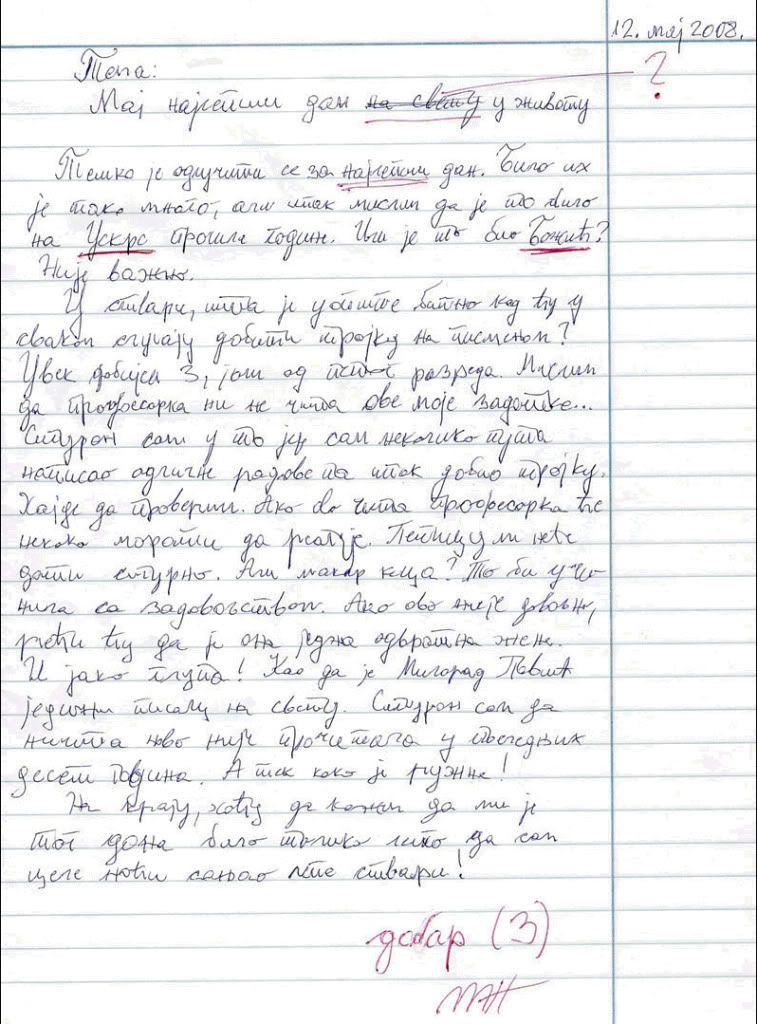 12. мај 2008.
Тема:
?
Мој најлепши дан на свету у животу
Тешко је одлучити се за најлепши дан. Било их
је тако много, али ипак мислим да је то било
на Ускрс прошле године. Или је то био Божић?
Није важно.
У ствари, шта је уопште битно кад ћу у
сваком случају добити тројку на писменом?
Увек добијем 3, још од петог разреда. Мислим
да професорка ни не чита ове моје задатке...
Сигуран сам у то јер сам неколико пута
написао одличне радове па ипак добио тројку.
Хајде да проверим. Ако ово чита професорка ће
некако морати да реагује. Петицу ми неће
дати сигурно. Али макар кеца? То би учи-
нила са задовољством. Ако ово није довољно,
рећи ћу да је она једна одвратна жена.
И јако глупа! Као да је Милорад Павић
једини писац на свету. Сигуран сам да
ништа ново није прочитала у последњих
десет година. А тек како је ружна!
На крају, хоћу да кажем да ми је
тог дана било толико лепо да сам
целе ноћи сањао лепе ствари!
добар (3)